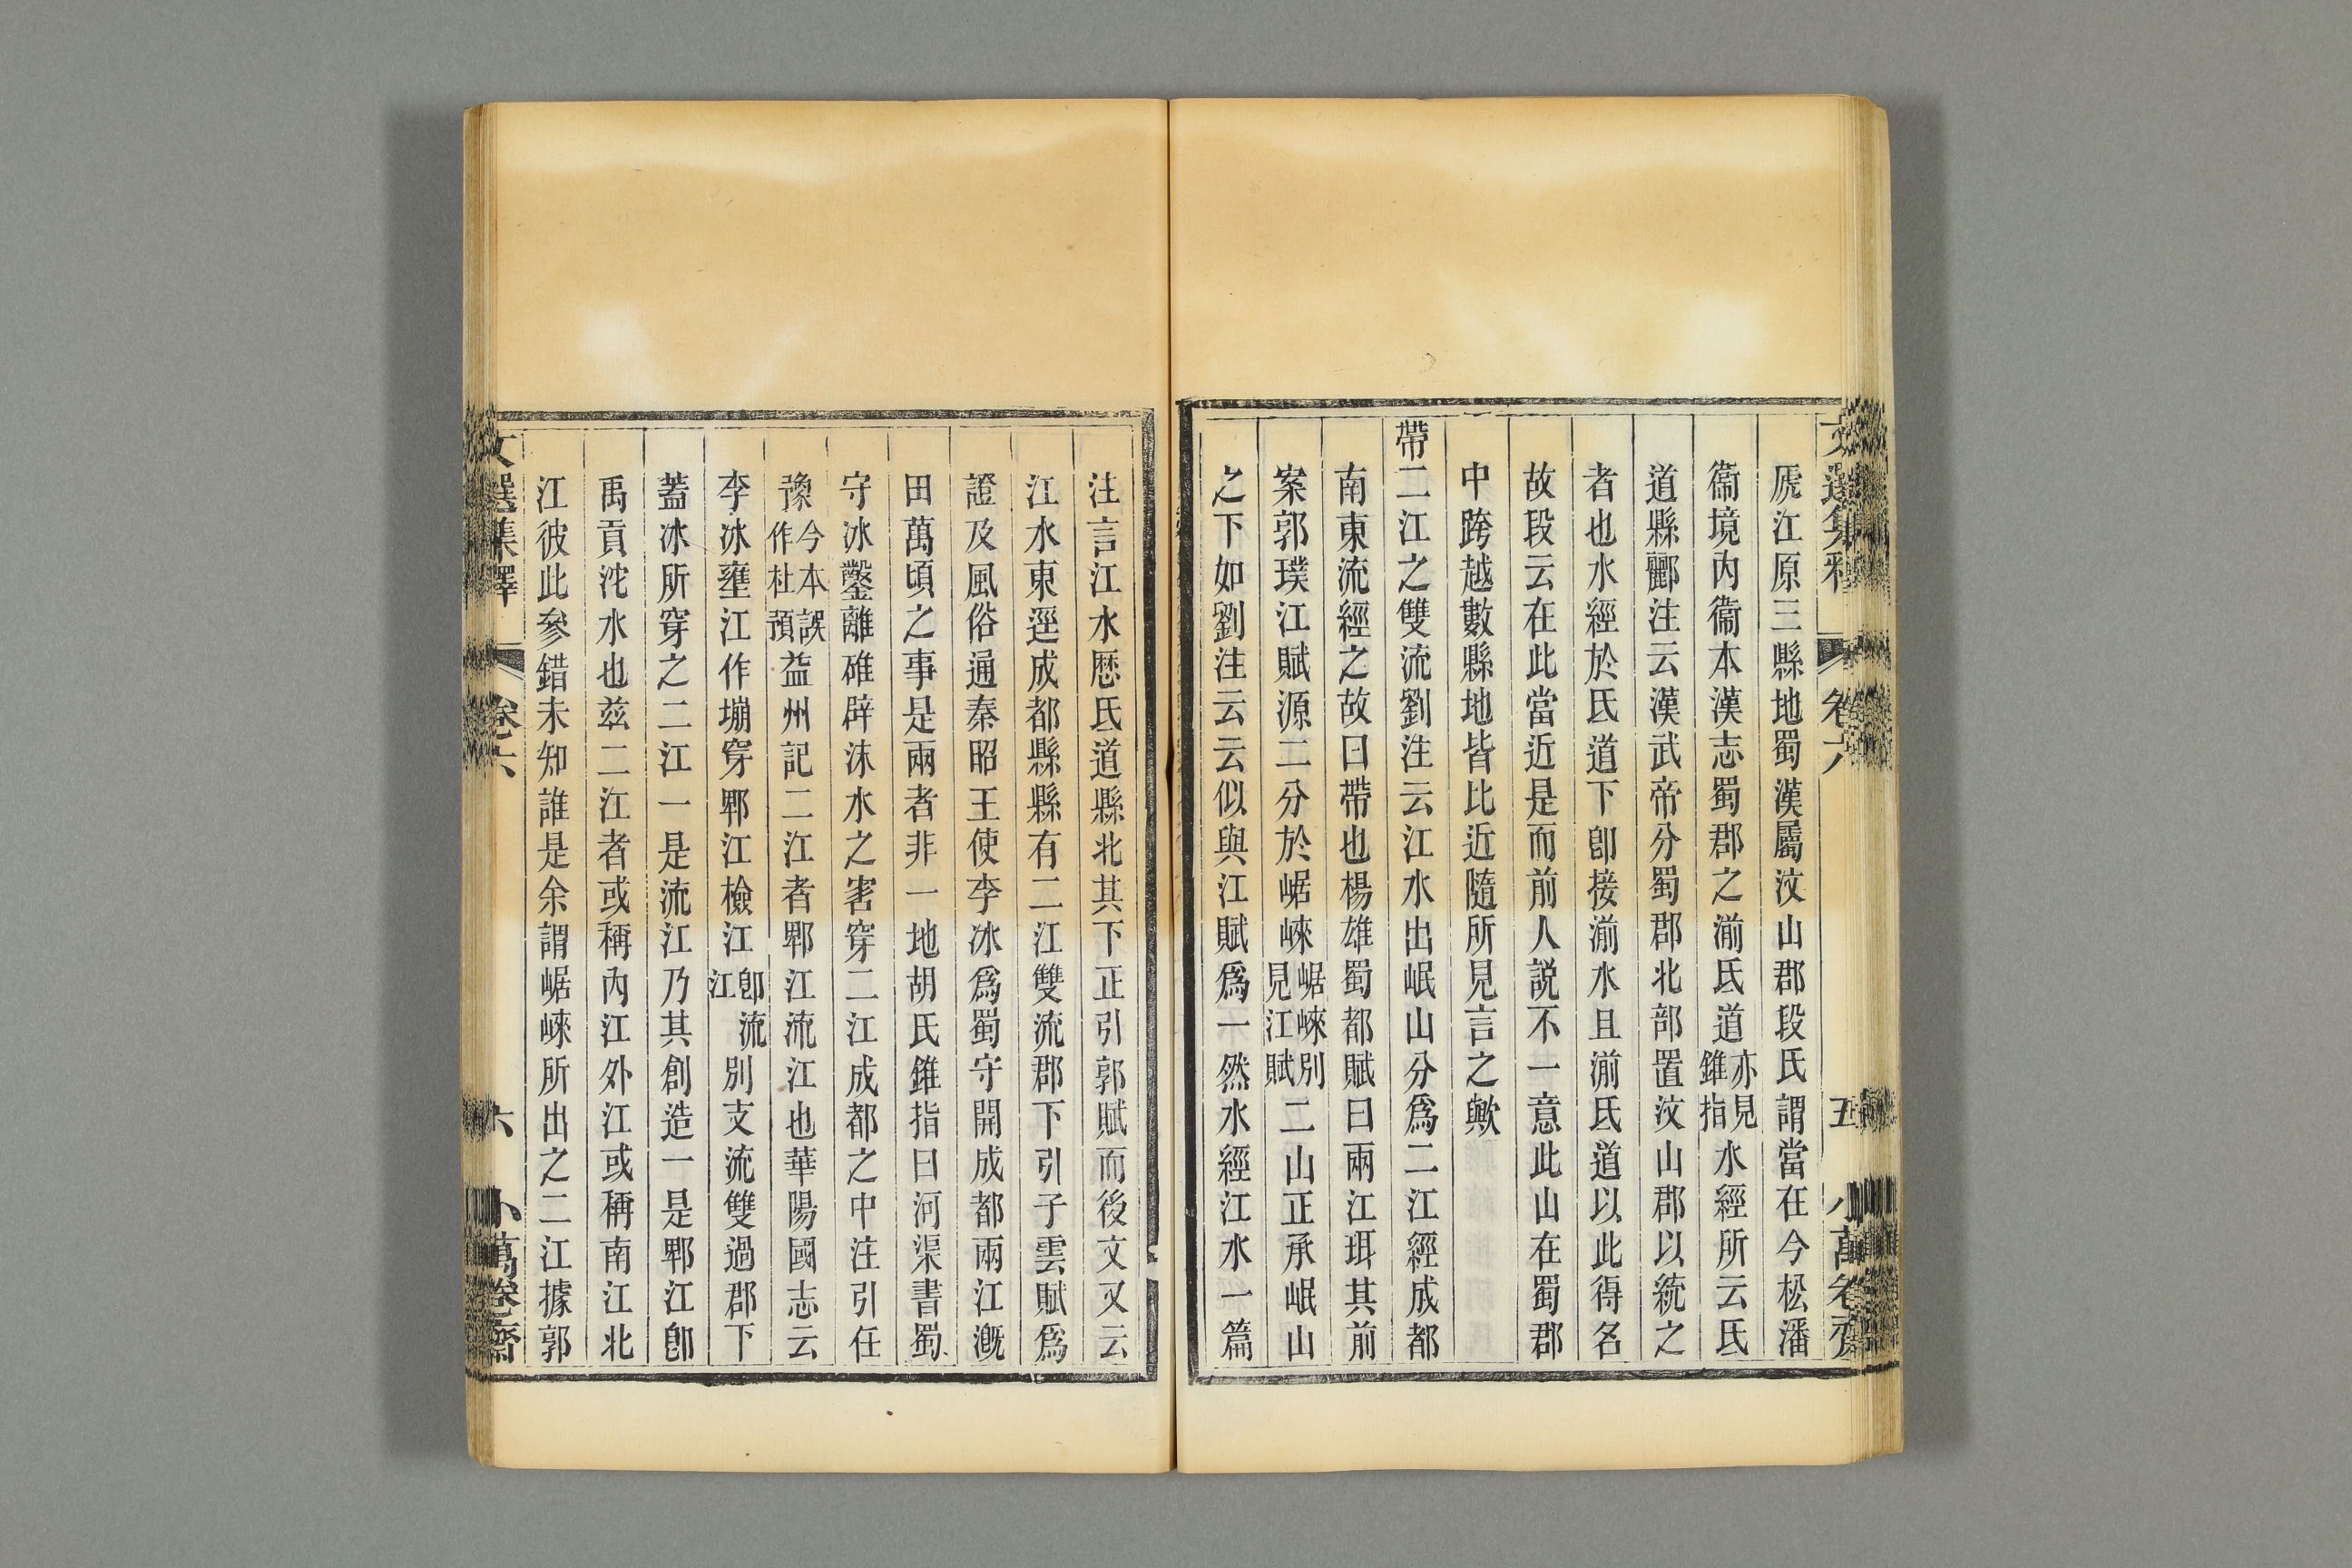 文選集釋 卷六 五 小萬卷齋
虒江原三縣地蜀漢屬汶山郡段氏謂當在今松潘
衞境內衞本漢志蜀郡之湔氐道亦見錐指水經所云氐
道縣酈注云漢武帝分蜀郡北部置汶山郡以統之
者也水經於氐道下卽接湔水且湔氐道以此得名
故段云在此當近是而前人說不一意此山在蜀郡
中跨越數縣地皆比近隨所見言之歟
帶二江之雙流劉注云江水出岷山分爲二江經成都
南東流經之故曰帶也楊雄蜀都賦曰兩江珥其前
案郭璞江賦源二分於崌崍崌崍別見江賦二山正承岷山
之下如劉注云云似與江賦爲一然水經江水一篇
注言江水歷氐道縣北其下正引郭賦而後文又云
江水東逕成都縣縣有二江雙流郡下引子雲賦爲
證及風俗通秦昭王使李冰爲蜀守開成都兩江漑
田萬頃之事是兩者非一地胡氏錐指曰河渠書蜀
守冰鑿離碓辟沫水之害穿二江成都之中注引任
豫今本誤作杜預益州記二江者郫江流江也華陽國志云
李冰壅江作堋穿郫江檢江卽流江別支流雙過郡下
蓋冰所穿之二江一是流江乃其創造一是郫江卽
禹貢沱水也茲二江者或稱內江外江或稱南江北
江彼此參錯未知誰是余謂崌崍所出之二江據郭
文選集釋 卷六 六 小萬卷齋